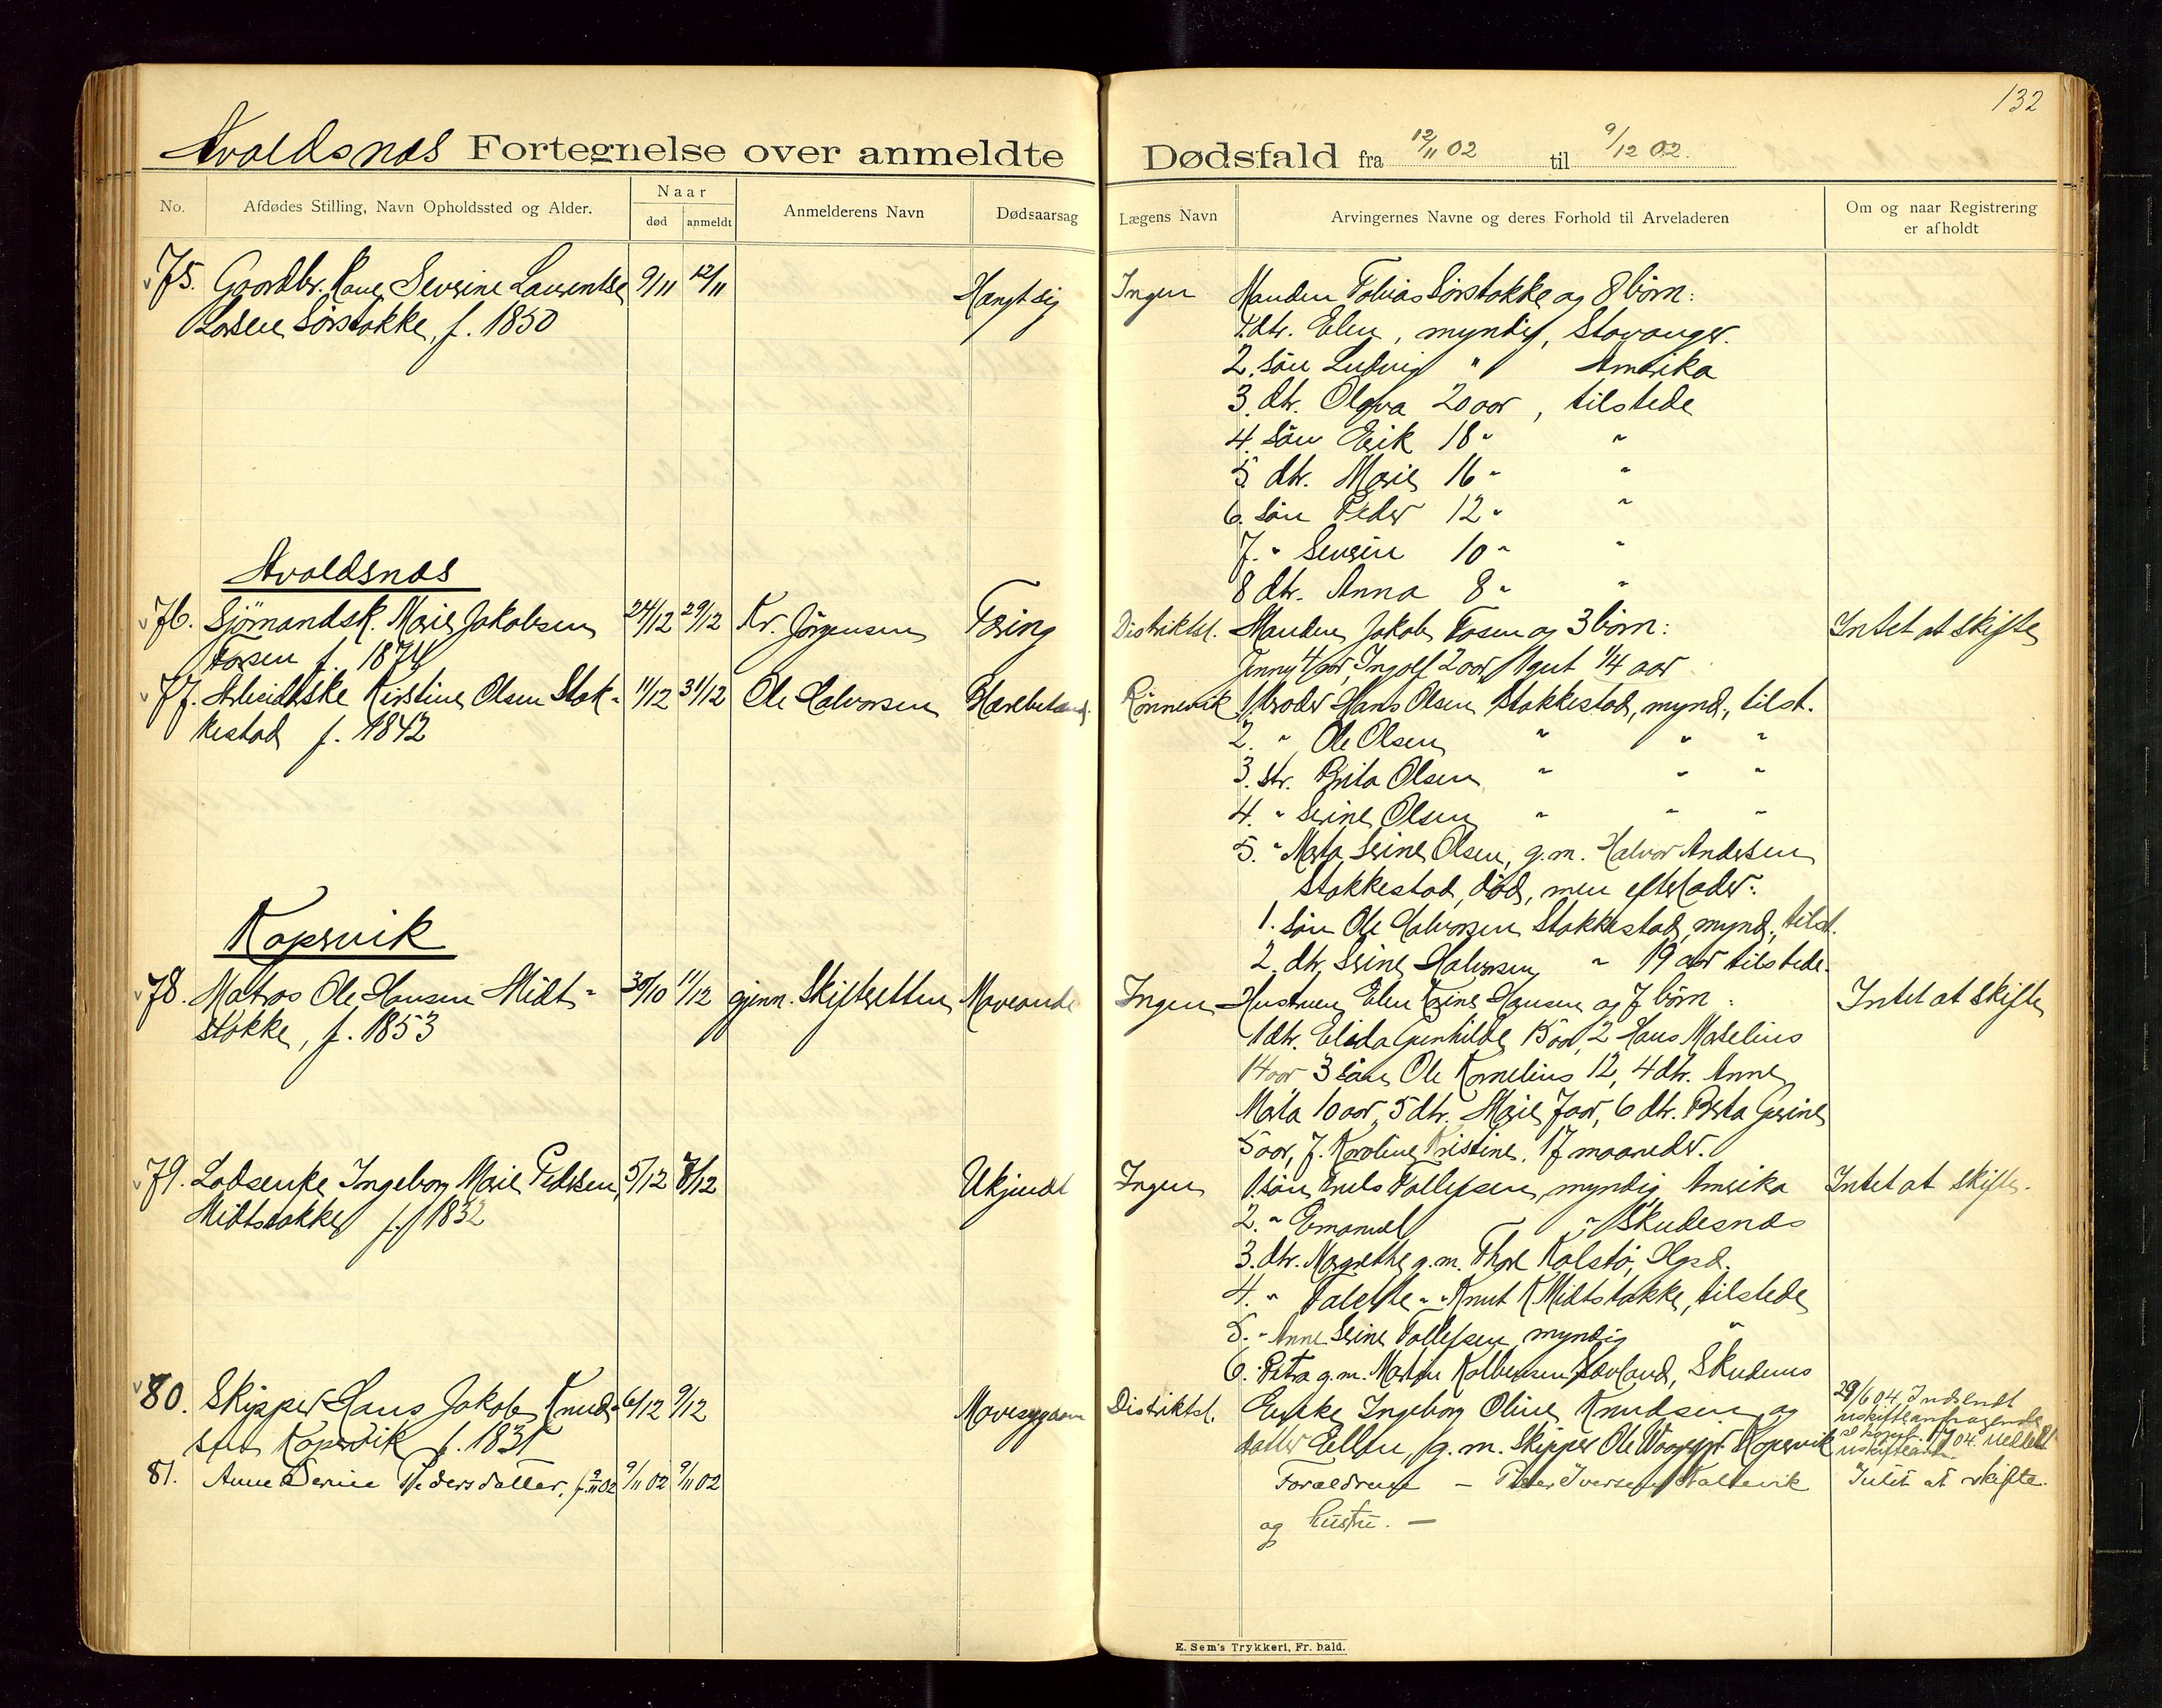 132
Avaldsnes Fortegnelse over anmeldte Dødsfald fra 12/11 02 til 9/12 02.
No. Afdødes Stilling, Navn Opholdssted og Alder. Naar død anmeldt Anmelderens Navn Dødsaarsag Lægens Navn Arvingernes Navne og deres Forhold til Arveladeren Om og naar Registrering er afholdt
75. Gaardbr. Kone Severine Laurentse 9/11 12/11 Hængt sig Ingen Manden Tobias Sørstokke og 8 børn:
Larsen Sørstokke, f. 1850 1. dtr. Elen, myndig, Stavanger.
2. søn Ludvig " Amerika
3. dtr. Olava 20 aar, tilstede
4. søn Erik 18 " "
5 dtr. Marie 16 " "
6. søn Peder 12 " "
7. " Severin 10 " "
Avaldsnes
8 dtr. Anna 8 " "
76. Sjømandsk. Marie Jakobsen 24/12 29/12 Kr. Jørgensen Tæring Distriktsl. Manden Jakob Fosen og 3 børn: Intet at skifte
Fosen f. 1874 Jenny 4 aar, Ingolf 2 aar, 1 gut 1/4 aar
77. Arbeiderske Kirstine Olsen Stok- 11/12 31/12 Ole Halvorsen Rønnevik 1 broder Hans Olsen Stokkestad, mynd., tilst.
kestad f. 1842 2. " Ole Olsen " " "
3. str. Brita Olsen " " "
4. " Serine Olsen " " "
5. " Marta Serine Olsen, g.m. Halvor Andersen
Stokkestad, død, men efterlader:
Kopervik
1. søn Ole Halvorsen Stokkestad, mynd., tilst.
2. dtr. Serine Halvorsen " 19 aar tilstede.
78. Matros Ole Hansen Midt- 30/10 11/12 gjenn. Skifteretten Ingen Hustruen Elen Hansen og 7 børn: Intet at skifte
stokke, f. 1853 1 dtr. Elida Gunhilde 15 aar, 2 Hans Matelius
14 aar 3 søn Ole Kornelius 12, 4 dtr. Anne
Marta 10 aar, 5 dtr. Marie 7 aar, 6 dtr. Berta Gurine
5 aar, 7. Karoline Kristine, 17 maaneder.
79. Lodsenke Ingeborg Marie Pedersen 5/12 8/12 Ukjendt Ingen 1. søn Tollefsen, myndig Amerika Intet at skifte.
Midtstokke f. 1832 2. " Emanuel " " Skudesnes
3. dtr. Margrethe g.m. Thore Kalstø,
4. " " " Knut K Midtstokke, tilstede
5. " Anne Serine Tollefsen myndig "
6. Petra g.m. Martin Kolbensen Sævland, Skudenes
80. Skipper Hans Jakob Knud- 6/12 9/12 Mavesygdom Distriktsl. Enke Ingeborg Oline Knudsen og 29/6 04. Indsendt
sen Kopervik f. 1831 datter Ellen, g.m. Skipper Ole Kopervik uskifteandragende
81. Anne Serine Pedersdatter, f. 9/11 02 9/11 02 9/11 02 Forældrene – Peder Iversen Faltevik Intet at skifte.
og hustru. –
E. Sem's Trykkeri, Fr.hald.